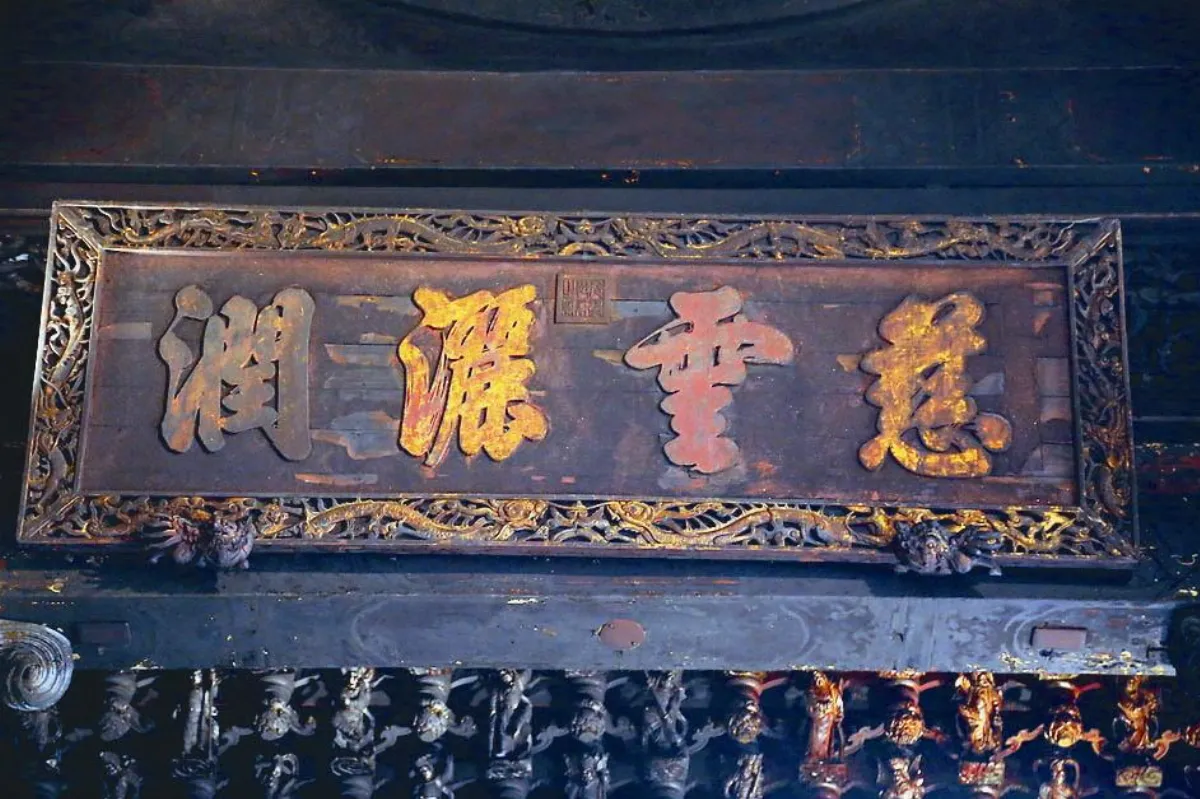 慈雲灑潤